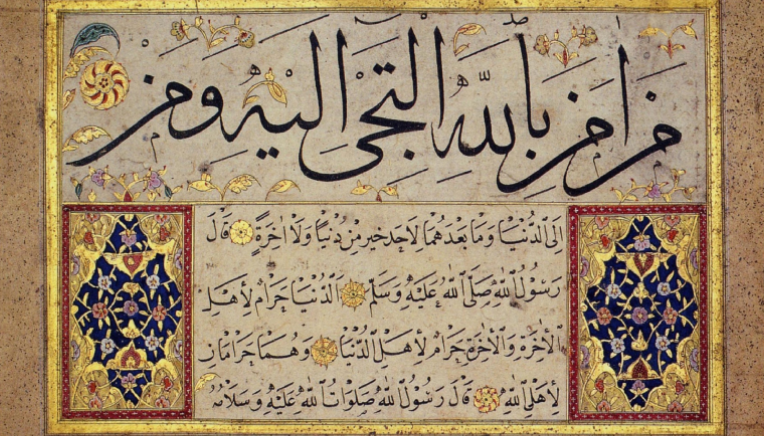 من امن بالله التجى اليه ومن
اِلَى الدُّنْيَا وَمَا بَعْدَهُمَا لَاجد خير مِنْ دُنْيًا وَلَا اٰخِرَةٍ قَالَ
رَسُوْلُ اللّٰهِ صَلَّى اللّٰهُ عَلَيْهِ وَسَلَّمَ اَلدُّنْيَا حَرَامٌ لِأَهْلِ
الْاٰخِرَةِ وَالْاٰخِرَةُ حَرَامٌ لِأَهْلِ الدُّنْيَا وَهُمَا حَرَامَانِ
لِأَهْلِ اللّٰهِ قَالَ رَسُوْلُ اللّٰهِ صَلَوَاتُ اللّٰهِ عَلَيْهِ وَسَلَامُهُ